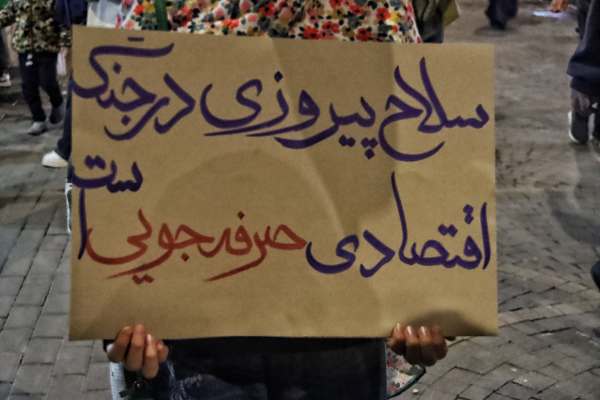 سلاح پیروزی در جنگ
اقتصادی صرفه‌جویی است